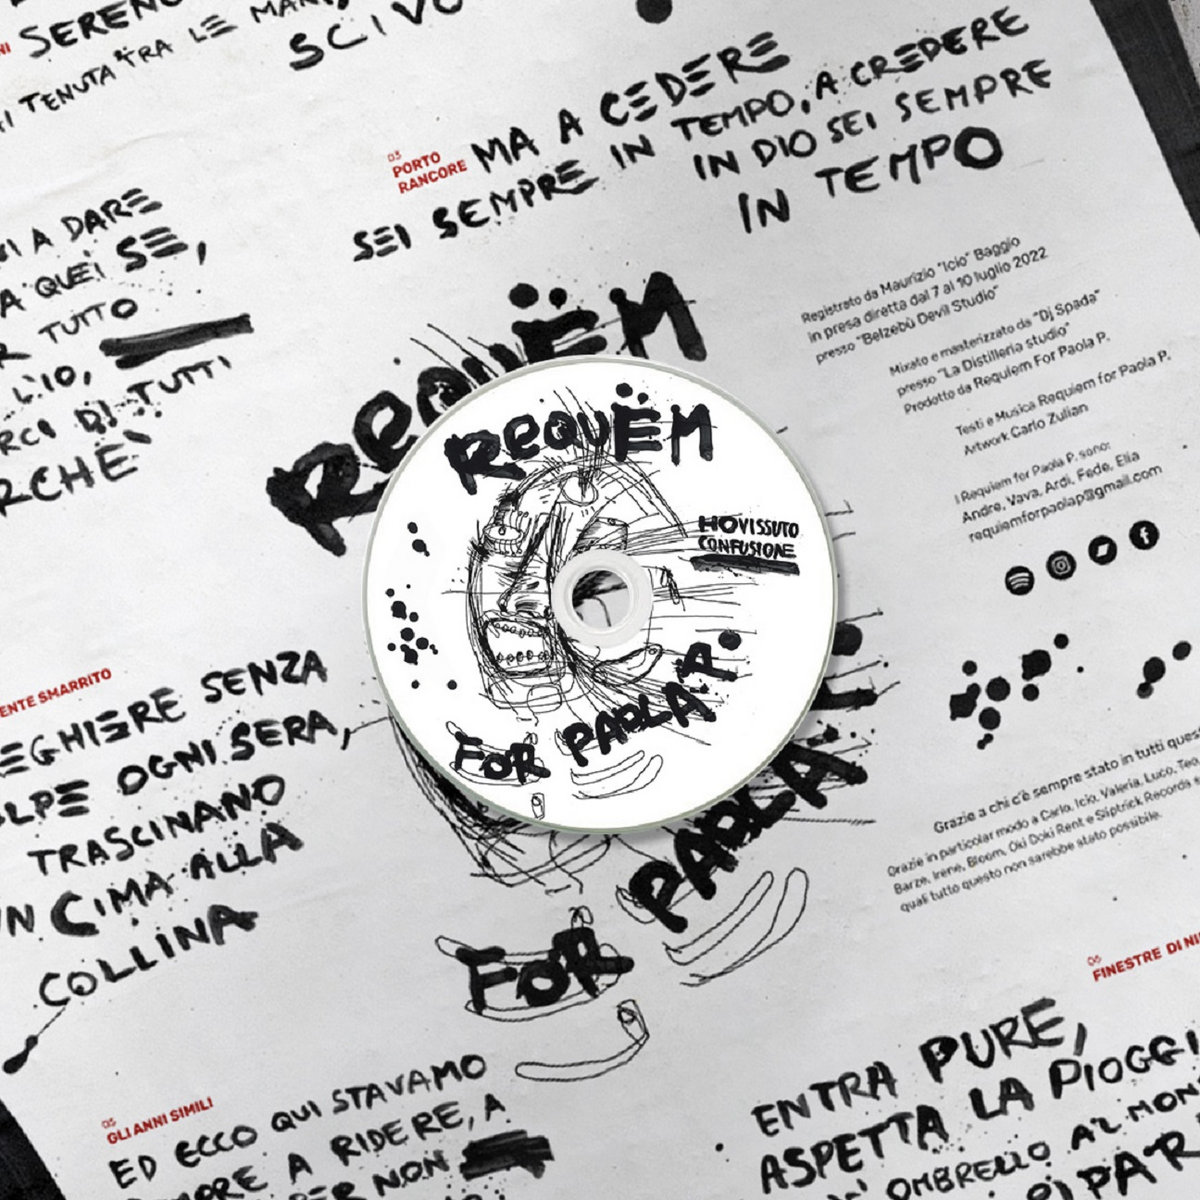 SERENO
TENUTA TRA LE MANI,
SCIVO
03
PORTO
RANCORE
MA A CEDERE
SEI SEMPRE IN TEMPO, A CREDERE
IN DIO SEI SEMPRE
IN TEMPO
A DARE
A QUEI SE,
TUTTO
L'IO,
DI TUTTI
Registrato da Maurizio "Icio" Baggio
in presa diretta dal 7 al 10 luglio 2022
presso "Belzebù Devil Studio"
Mixato e masterizzato da "Dj Spada"
presso "La Distilleria studio"
Prodotto da Requiem For Paola P.
Testi e Musica Requiem for Paola P.
Artwork Carlo Zulian
I Requiem for Paola P. sono:
Andre, Vava, Ardi, Fede, Elia
requiemforpaolap@gmail.com
REQUÏËM
FOR PAOLA P.
REQUÏËM
HO VISSUTO
CONFUSIONE
FOR PAOLA P.
SMARRITO
SENZA
OGNI SERA,
TRASCINANO
IN CIMA ALLA
COLLINA
Grazie a chi c'è sempre stato in tutti
Grazie in particolar modo a Carlo, Icio, Valeria, Luca, Teo,
Barze, Irene, Bloom, Oki Doki Rent e Sliptrick Records
quali tutto questo non sarebbe stato possibile.
05
GLI ANNI SIMILI
ED ECCO QUI STAVAMO
A RIDERE, A
PER NON
06
FINESTRE DI
ENTRA PURE,
ASPETTA LA
OMBRELLO AL